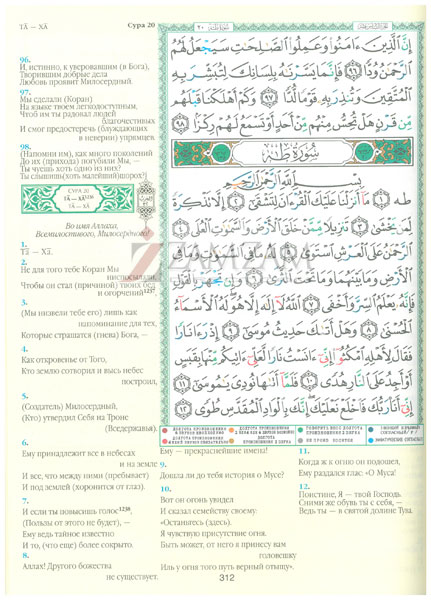 ТĀ — ХĀ
Сура 20
٢٠
96.
И, истинно, к уверовавшим (в Бога),
Творившим добрые дела
Любовь проявит Милосердный.
97.
Мы сделали (Коран)
На языке твоем легкодоступным,
Чтоб им ты радовал людей
благочестивых
И смог предостеречь (блуждающих
в неверии) упрямцев.
98.
(Напомни им), как много поколений
До их (прихода) погубили Мы, —
Ты чуешь хоть одно из них?
Ты слышишь (хоть малейший) шорох?)
СУРА 20
ТĀ — ХĀ
Во имя Аллаха,
Всемилостивого, Милосердного!
1.
Тā — Хā.
2.
Не для того тебе Коран Мы
ниспосылали,
Чтобы он стал (причиной) твоих бед
и огорчений
3.
(Мы низвели тебе его) лишь как
напоминание для тех,
Которые страшатся (гнева) Бога, —
4.
Как откровенье от Того,
Кто землю сотворил и высь небес
построил,
5.
(Создатель) Милосердный,
(Кто) утвердил Себя на Троне
(Вседержавья).
6.
Ему принадлежит все в небесах
и на земле
И все, что между ними (пребывает)
И под землей (хоронится от глаз).
7.
И если ты повысишь голос
(Пользы от этого не будет), —
Ему ведь тайное известно
И то, (что еще) более сокрыто.
8.
Аллах! Другого божества
не существует.
إِنَّ الَّذِينَ ءَامَنُوا وَعَمِلُوا الصَّٰلِحَٰتِ سَيَجْعَلُ لَهُمُ
الرَّحْمَٰنُ وُدًّا ٩٦ فَإِنَّمَا يَسَّرْنَٰهُ بِلِسَانِكَ لِتُبَشِّرَ بِهِ
الْمُتَّقِينَ وَتُنذِرَ بِهِ قَوْمًا لُّدًّا ٩٧ وَكَمْ أَهْلَكْنَا قَبْلَهُم
مِّن قَرْنٍ هَلْ تُحِسُّ مِنْهُم مِّنْ أَحَدٍ أَوْ تَسْمَعُ لَهُمْ رِكْزًا ٩٨
سُورَةُ طه
بِسْمِ اللَّهِ الرَّحْمَٰنِ الرَّحِيمِ
طه ١ مَا أَنزَلْنَا عَلَيْكَ الْقُرْءَانَ لِتَشْقَىٰ ٢ إِلَّا تَذْكِرَةً
لِّمَن يَخْشَىٰ ٣ تَنزِيلًا مِّمَّنْ خَلَقَ الْأَرْضَ وَالسَّمَٰوَٰتِ الْعُلَى ٤
الرَّحْمَٰنُ عَلَى الْعَرْشِ اسْتَوَىٰ ٥ لَهُ مَا فِي السَّمَٰوَٰتِ وَمَا فِي
الْأَرْضِ وَمَا بَيْنَهُمَا وَمَا تَحْتَ الثَّرَىٰ ٦ وَإِن تَجْهَرْ بِالْقَوْلِ
فَإِنَّهُ يَعْلَمُ السِّرَّ وَأَخْفَى ٧ اللَّهُ لَا إِلَٰهَ إِلَّا هُوَ لَهُ الْأَسْمَاءُ
الْحُسْنَىٰ ٨ وَهَلْ أَتَىٰكَ حَدِيثُ مُوسَىٰ ٩ إِذْ رَءَا نَارًا
فَقَالَ لِأَهْلِهِ امْكُثُوا إِنِّي ءَانَسْتُ نَارًا لَّعَلِّي ءَاتِيكُم مِّنْهَا بِقَبَسٍ
أَوْ أَجِدُ عَلَى النَّارِ هُدًى ١٠ فَلَمَّا أَتَىٰهَا نُودِيَ يَٰمُوسَىٰ ١١
إِنِّي أَنَا رَبُّكَ فَاخْلَعْ نَعْلَيْكَ إِنَّكَ بِالْوَادِ الْمُقَدَّسِ طُوًى ١٢
Ему — прекраснейшие имена!
9.
Дошла ли до тебя история о Мусе?
10.
Вот он огонь увидел
И сказал семейству своему:
«Останьтесь (здесь).
Я чувствую присутствие огня.
Быть может, от него я принесу вам
головешку
Иль у огня 'того путь верный отыщу».
11.
Когда ж к огню он подошел,
Ему раздался глас: «О Муса!
12.
Поистине, Я — твой Господь.
Сними же обувь ты с себя, —
Ведь ты — в святой долине Тува.
312